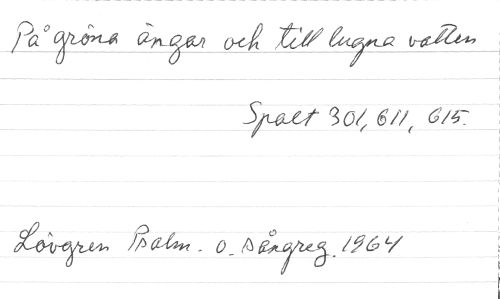 På gröna ängar och till lugna vatten
Spalt 301, 611, 615.
Lövgren Psalm- o. sångreg. 1964